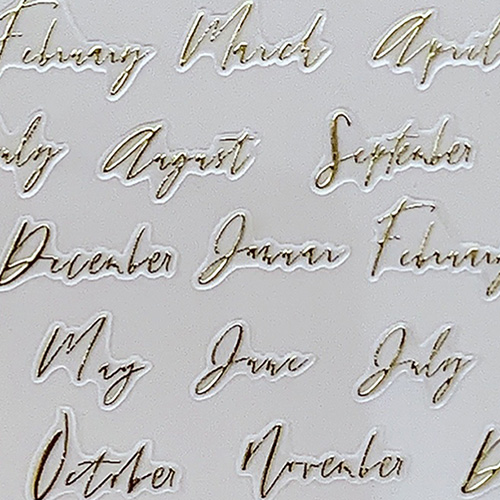 February March April
July August September
December Januar February
May June July
October November